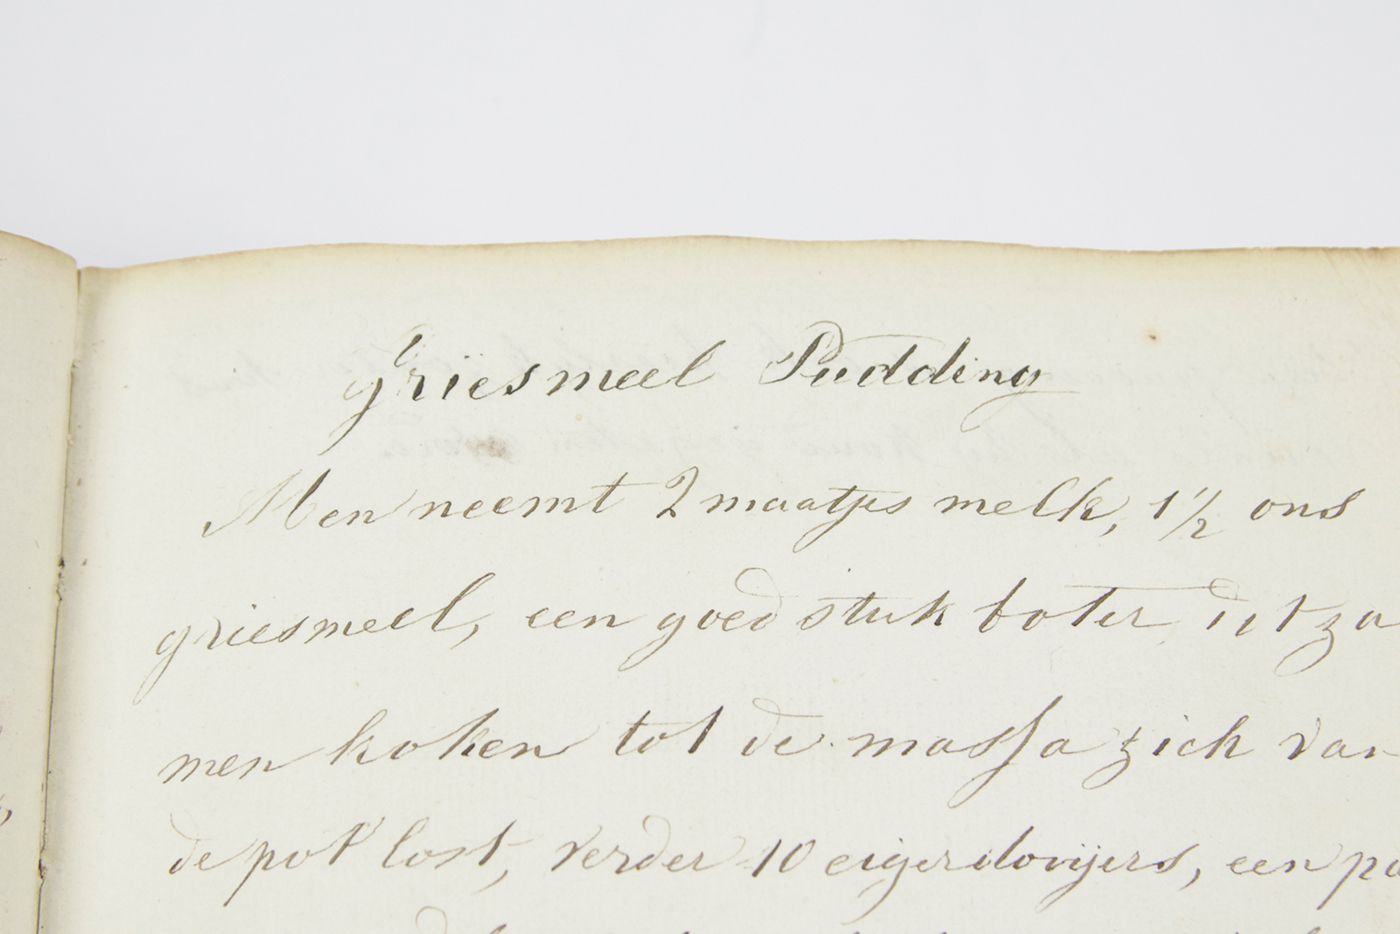 Griesmeel Pudding
Men neemt 2 maatjes melk, 1 1/2 ons
griesmeel, een goed stuk boter, dit za
men koken tot de massa zich van
de pot lost, verder 10 eijerdoyers, een pa